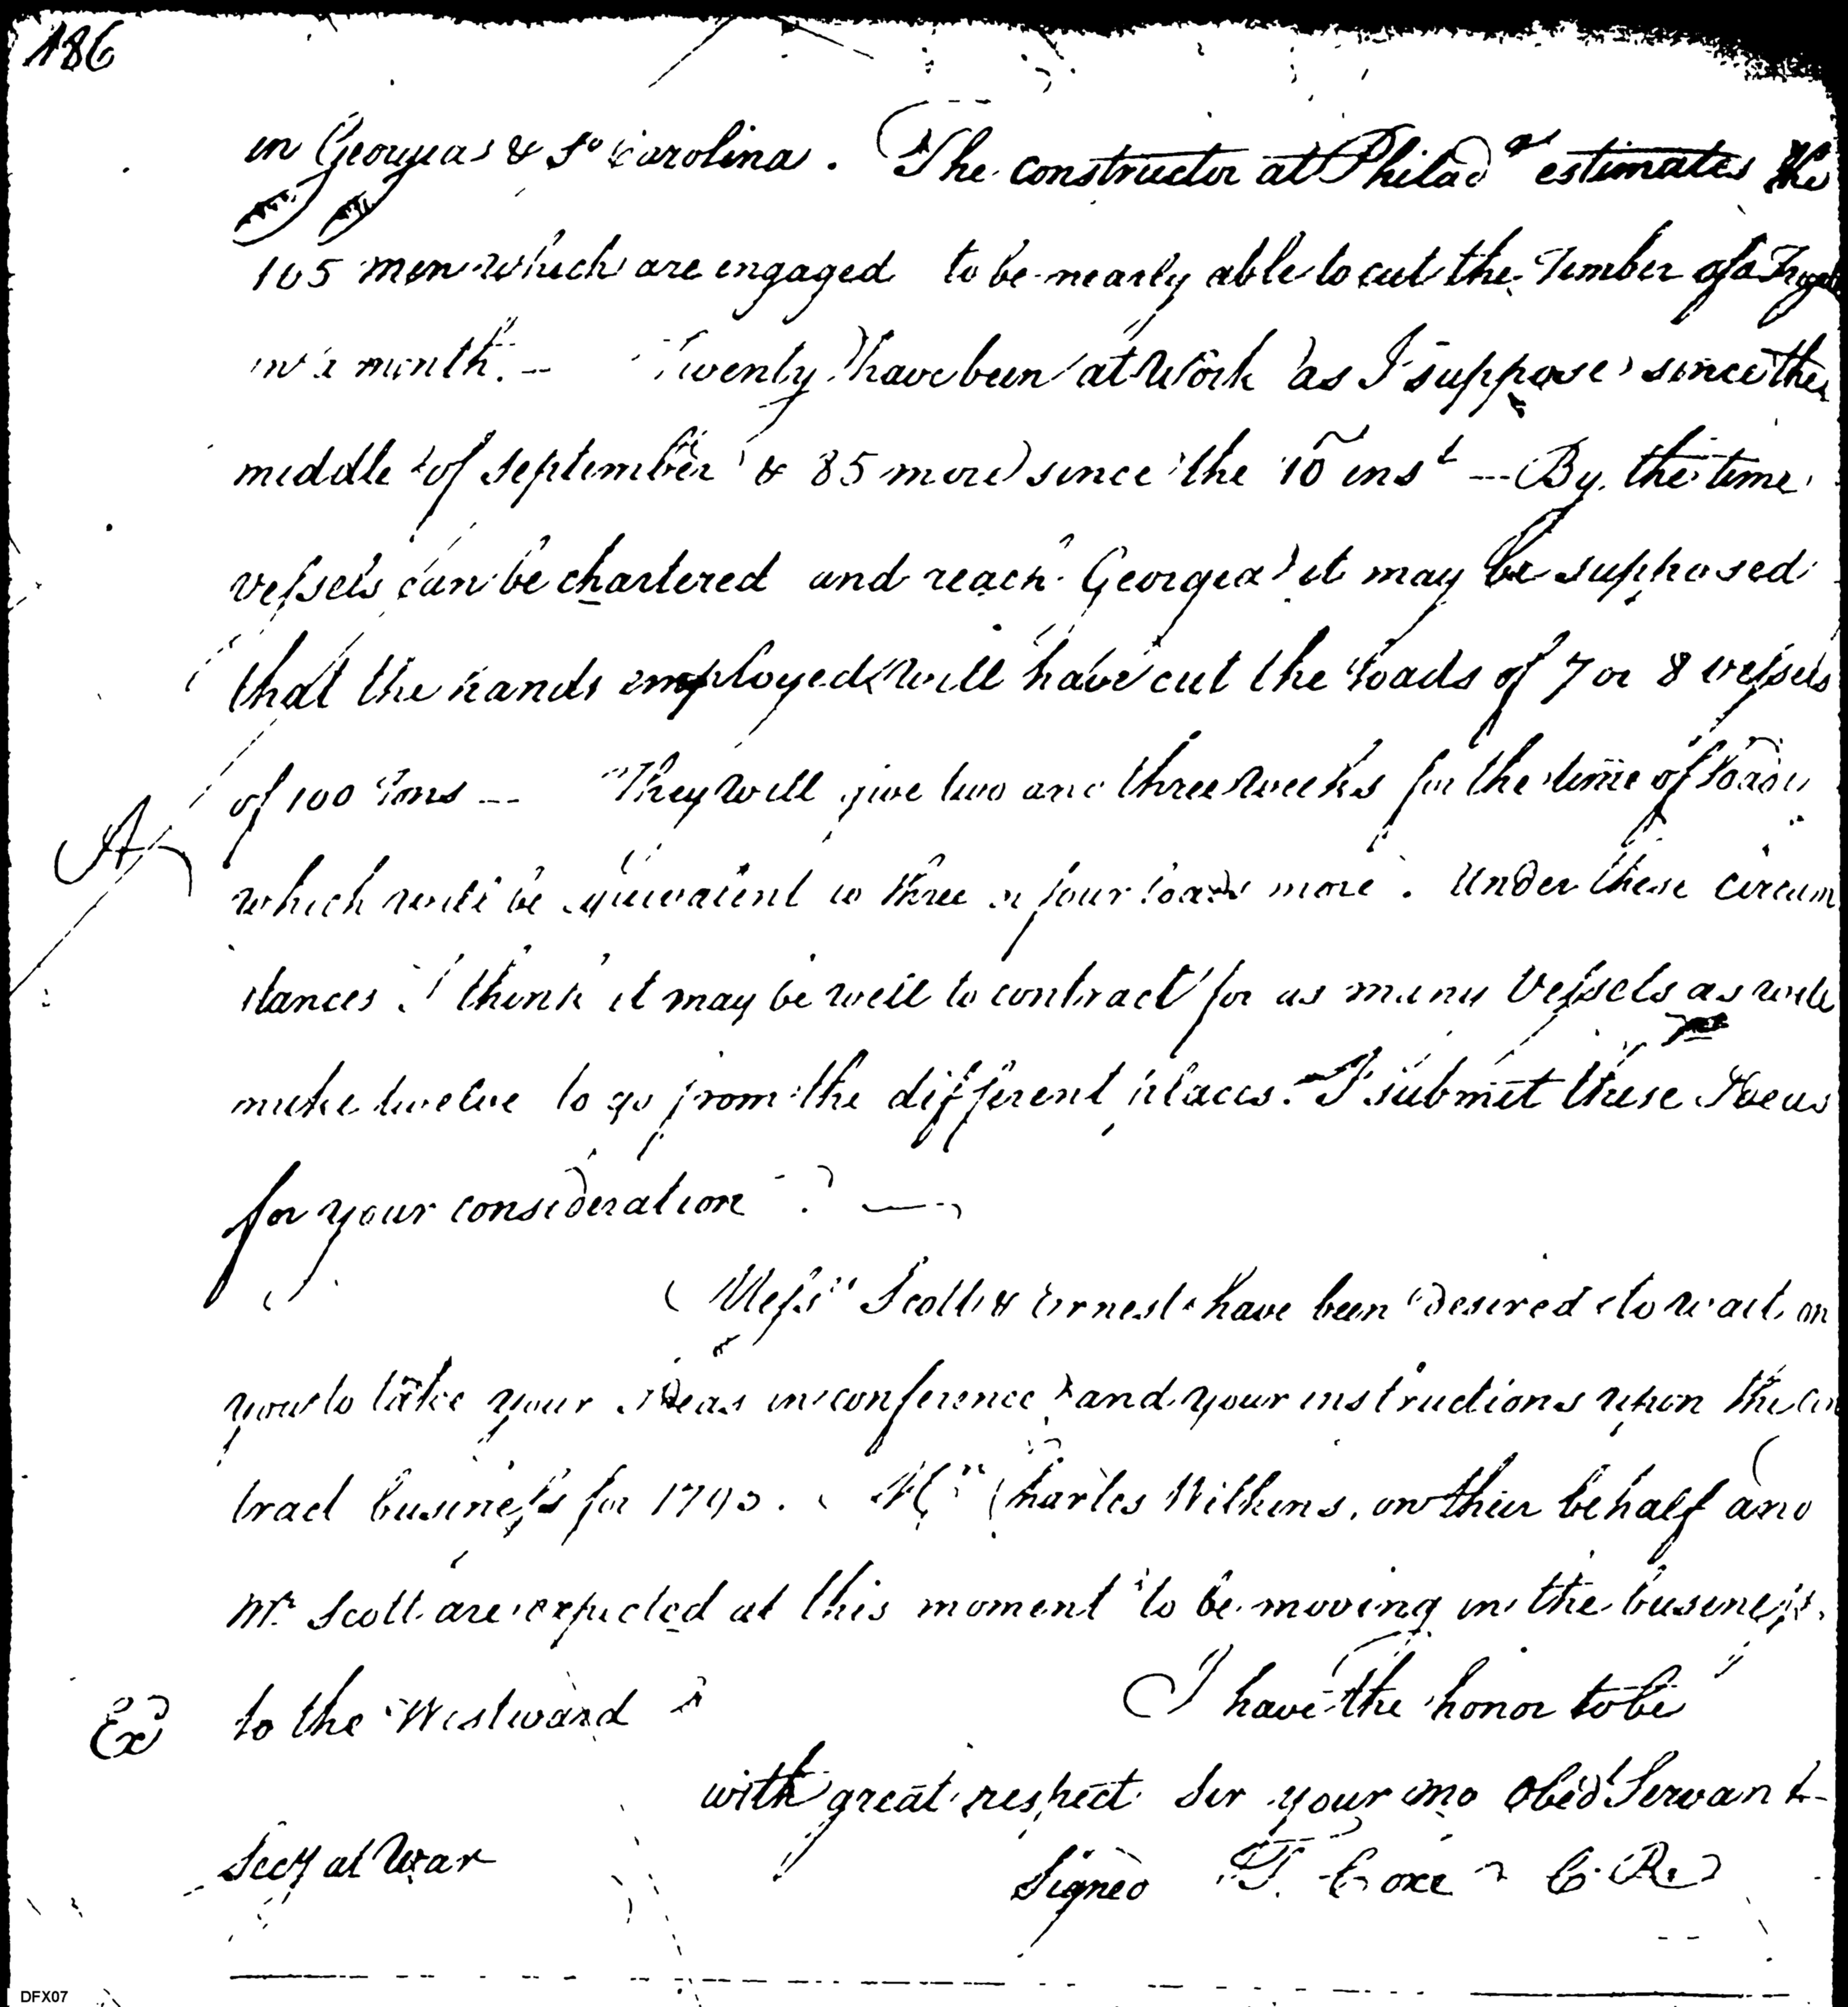 186
in Georgia & So Carolina. The constructor at Philada estimates the
105 men which are engaged to be nearly able to cut the Timber of a Frigate
in a month. – Twenty have been at Work as I suppose since the
middle of September & 85 more since the 10 inst – By the time
vessels can be chartered and reach Georgia it may be supposed
that the hands employed will have cut the loads of 7 or 8 vessels
of 100 Tons – They will give two and three weeks for the time of loadg
A
which will be equivalent to three or four loads more. Under these circum
stances I think it may be well to contract for as many Vessels as will
make twelve to go from the different places. I submit these Ideas
for your consideration. –
Messrs Scott & Ernest have been desired to wait on
you to take your ideas in conference and your instructions upon the con
tract business for 1795. Mr Charles Wilkins, on their behalf and
Mr Scott are expected at this moment to be moving in the business
Exd to the Westward I have the honor to be
with great respect Sir your mo Obedt Servant
Secy at War
Signed T. Coxe C. R.
DFX07